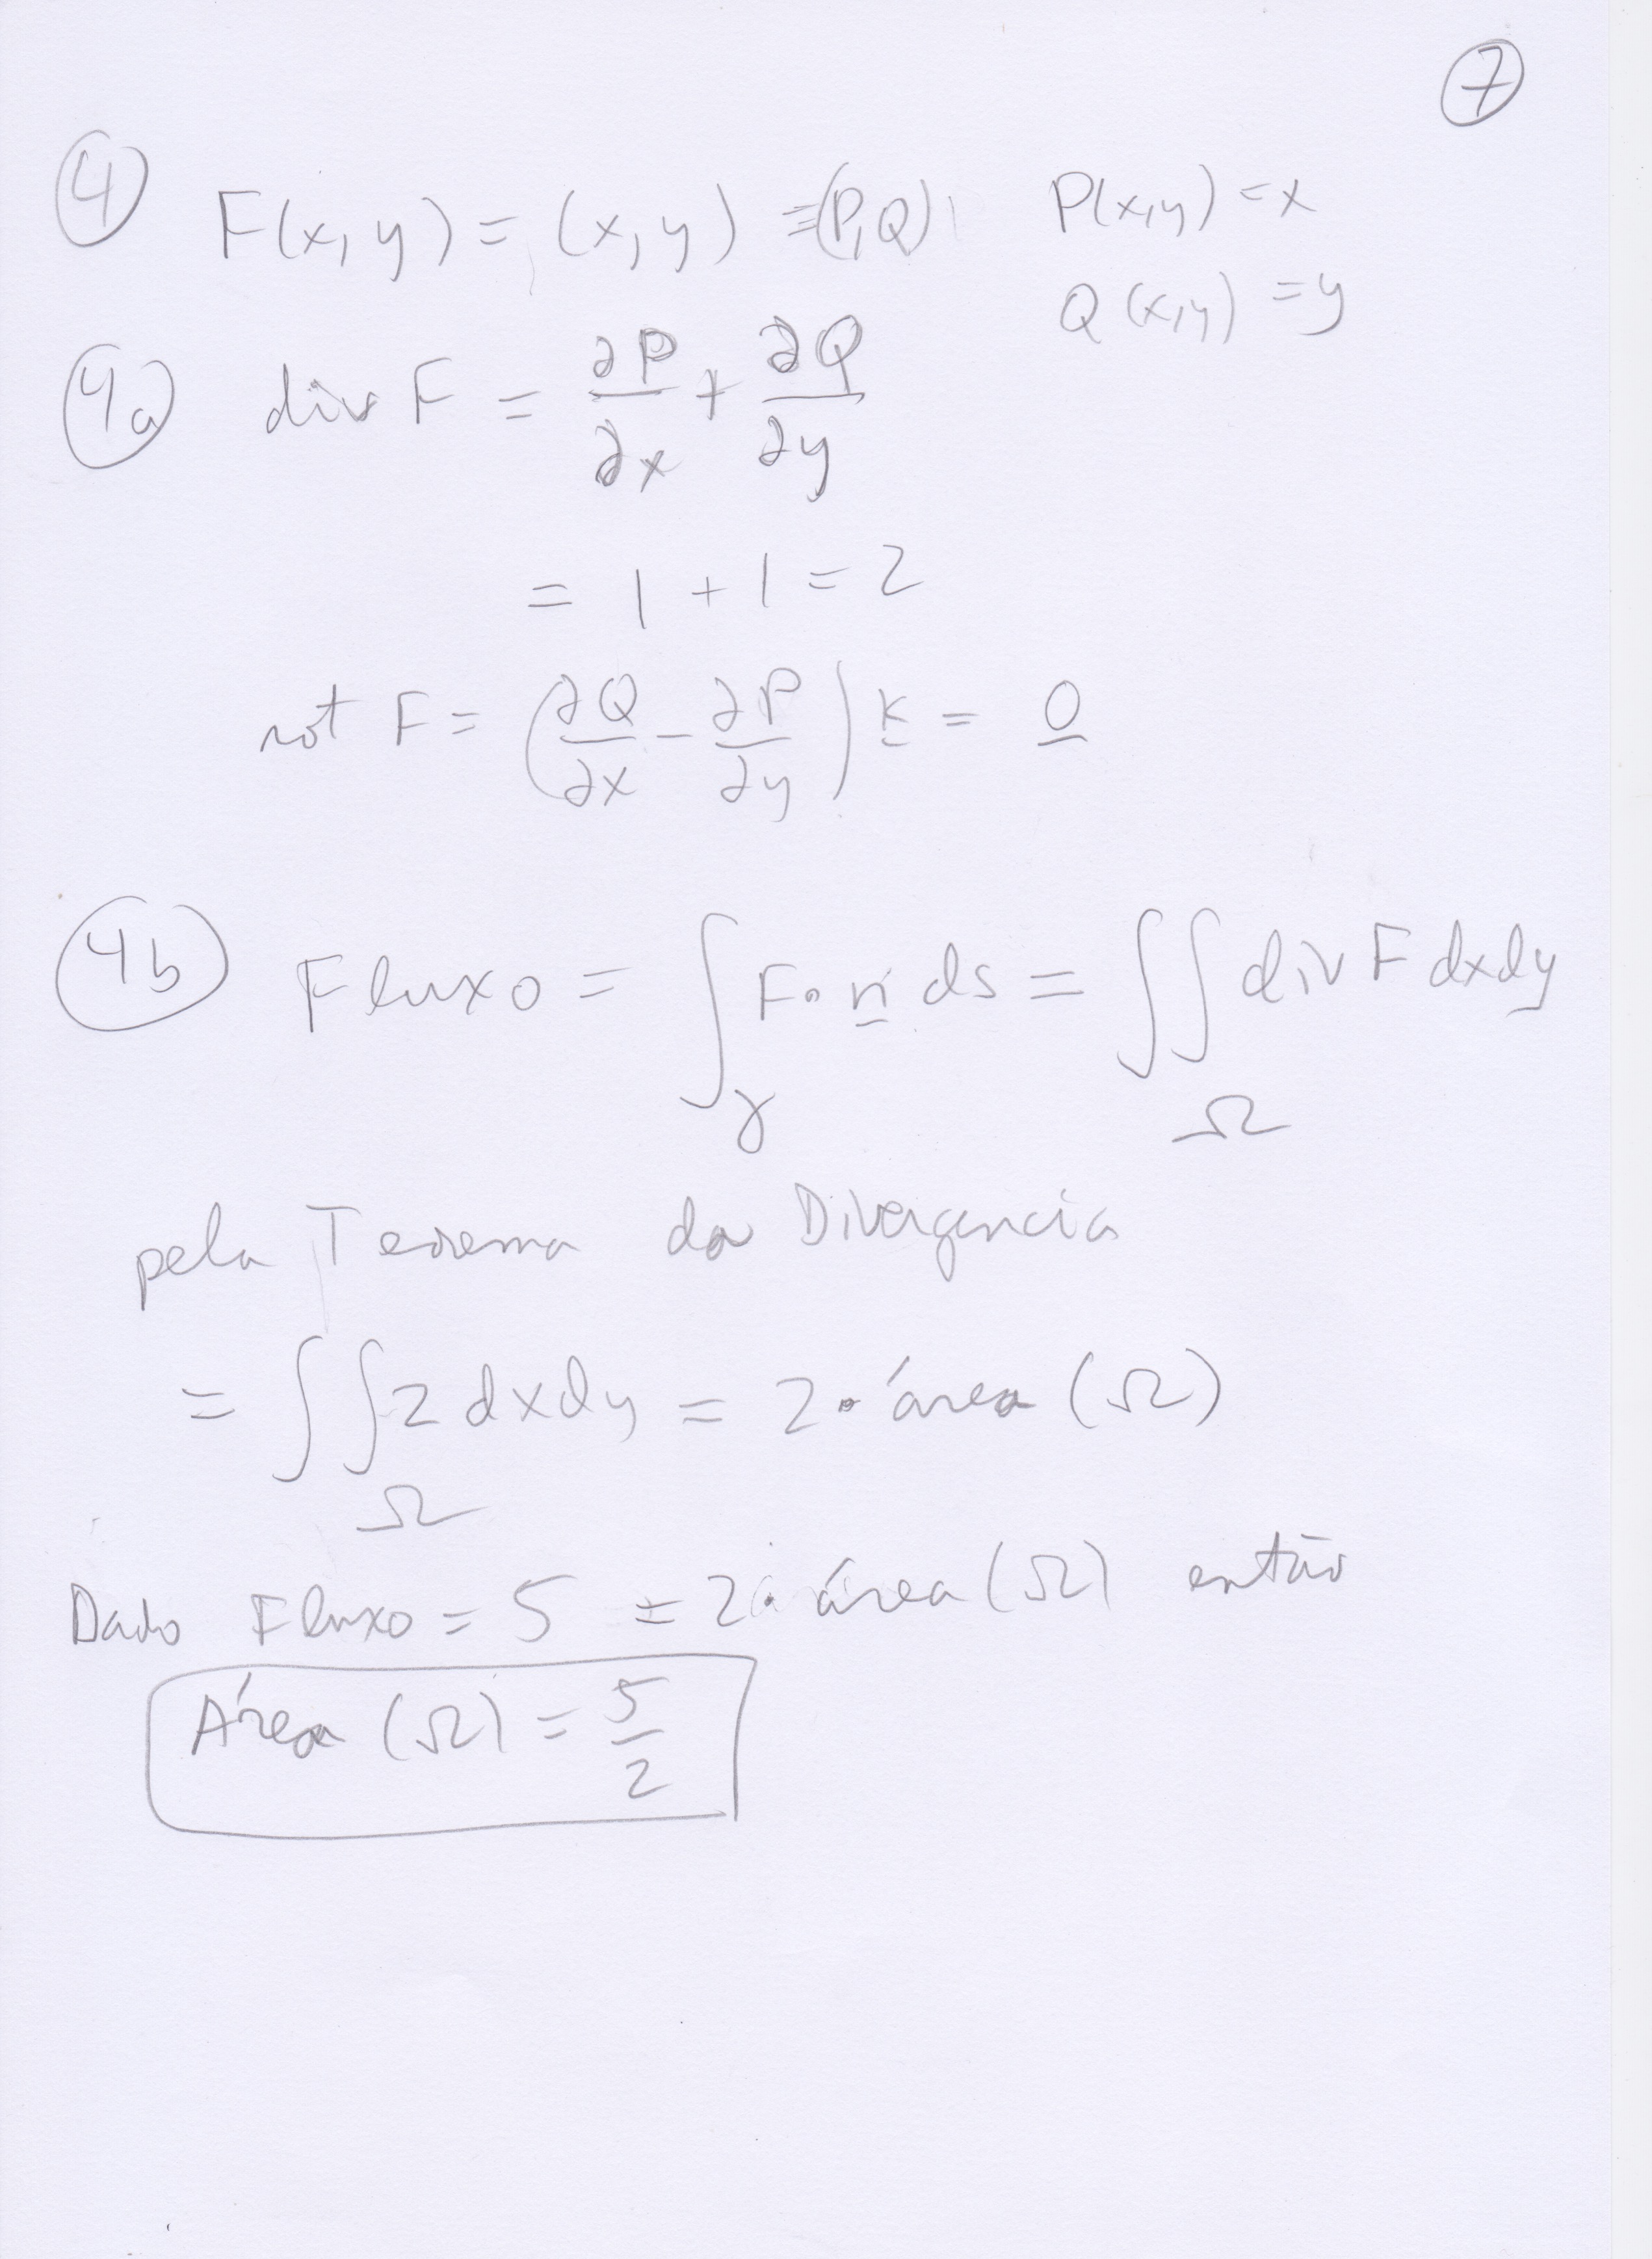 7
4 F(x,y) = (x,y) ≡ (P,Q) P(x,y) = x
Q(x,y) = y
4a div F = ∂P/∂x + ∂Q/∂y
= 1 + 1 = 2
rot F = (∂Q/∂x - ∂P/∂y) k = 0
4b Fluxo = ∫γ F · n ds = ∬Ω div F dxdy
pela Teorema da Divergencia
= ∬Ω 2 dxdy = 2 · área (Ω)
Dado Fluxo = 5 = 2 · área (Ω) então
Área (Ω) = 5/2